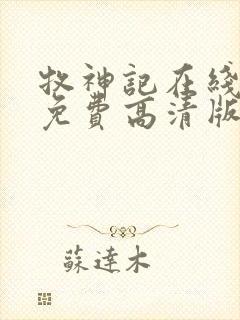 牧神記在綫
免費高清版
蘇達木